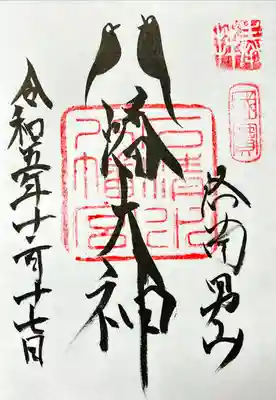 奉拝
洛南男山
幡大神
石清水八幡宮
令和五年十一月十七日